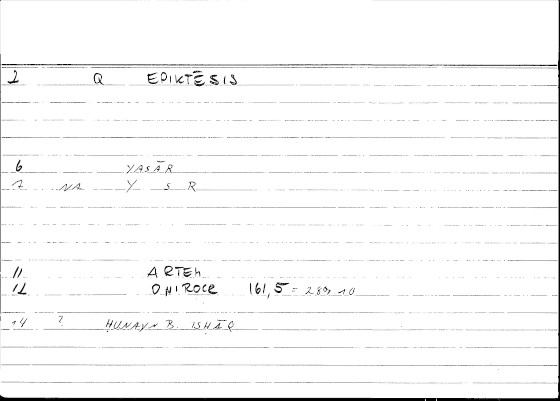 2 Q EPIKTĒSIS
6 YASĀR
7 NA Y S R
11 ARTEM
12 ONIROCR 161,5 = 289,10
14 ? ḤUNAYN B. ISḤĀQ